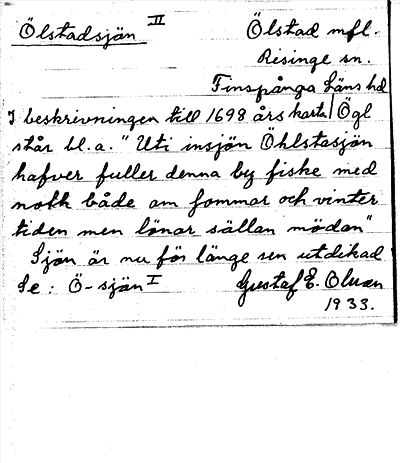 Ölstadsjön II Ölstad mfl.
Risinge sn.
Finspånga läns hd
I beskrivningen till 1698 års karta | Ögl
står bl.a. "Uti insjön Öhlstasjön
hafver fuller denna by fiske med
nokk både om sommar och vinter
tiden men lönar sällan mödan"
Sjön är nu för länge sen utdikad
Se: Ö-sjön I Gustaf E. Olson
1933.